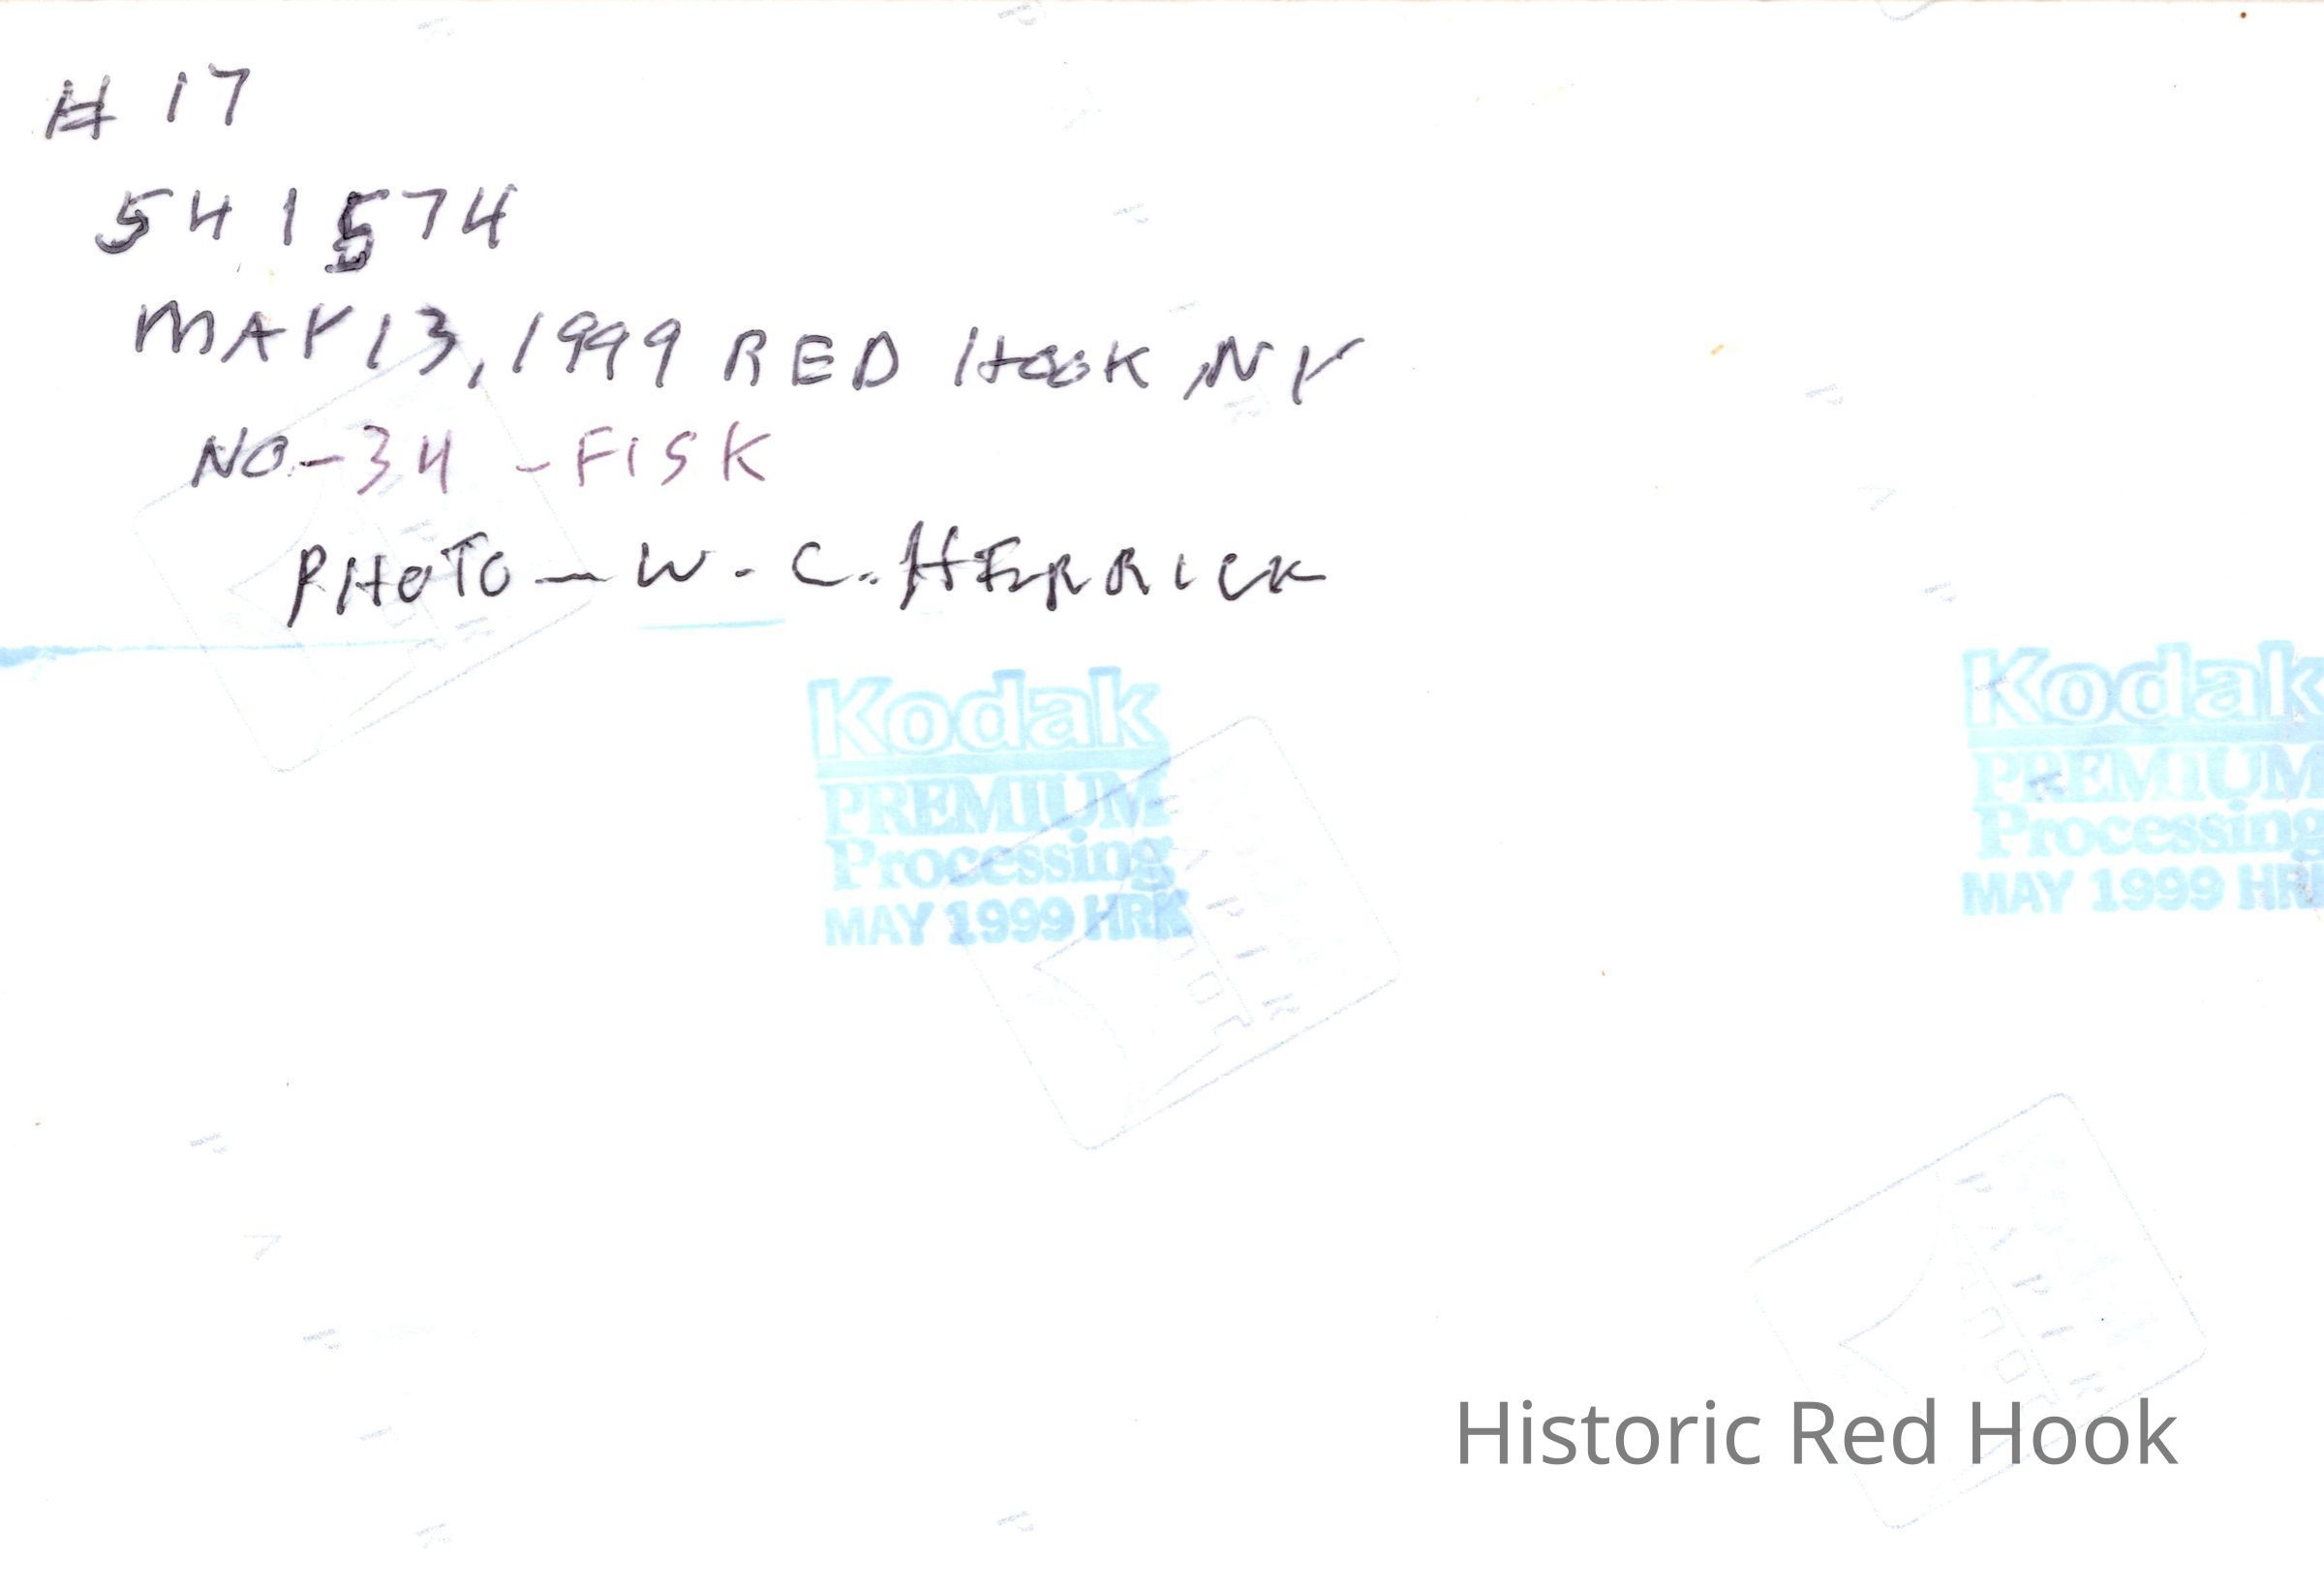 # 17
541574
MAY 13, 1999 RED HOOK, NY
NO.-34 -FISK
PHOTO — W. C. HERRICK
Kodak
PREMIUM
Processing
MAY 1999 HRK
Kodak
PREMIUM
Processing
MAY 1999 HRK
Historic Red Hook